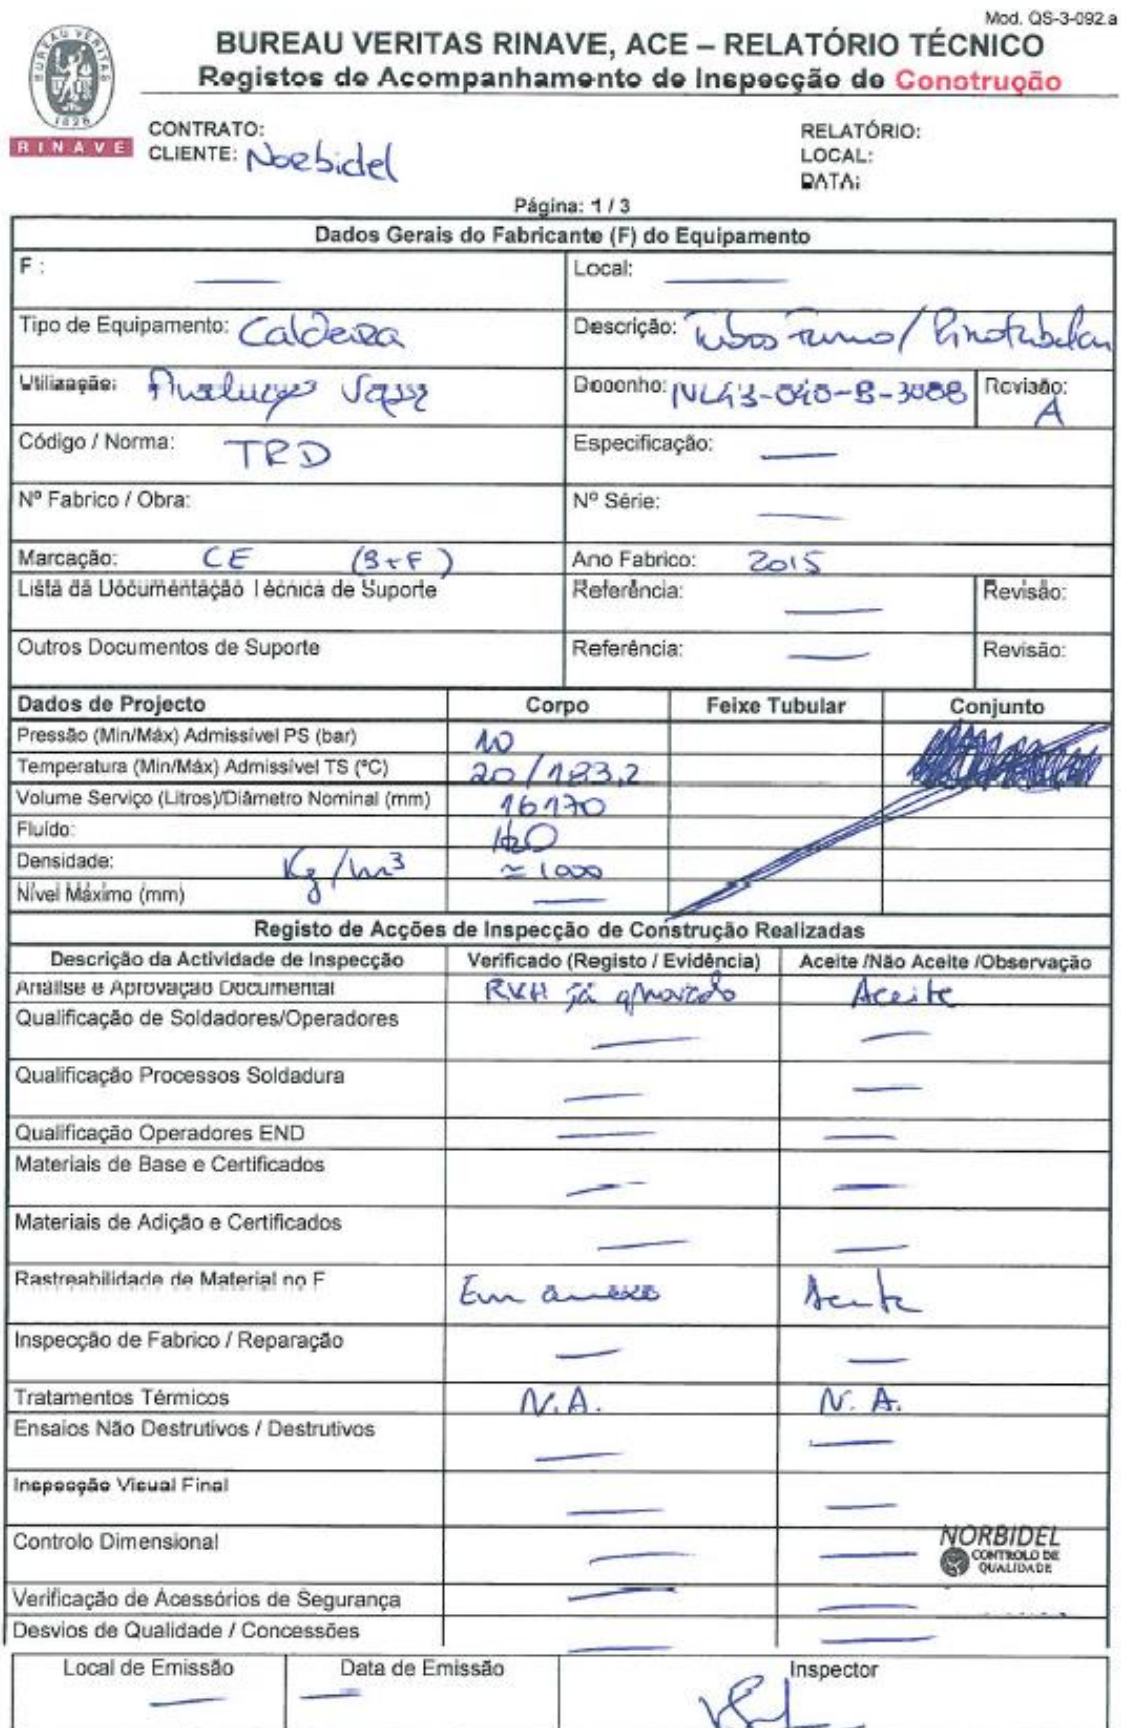 Mod. QS-3-092.a
BUREAU VERITAS
1828
RINAVE
BUREAU VERITAS RINAVE, ACE – RELATÓRIO TÉCNICO
Registos de Acompanhamento de Inspecção de Construção
CONTRATO:
CLIENTE: Norbidel
RELATÓRIO:
LOCAL:
DATA:
Página: 1 / 3
Dados Gerais do Fabricante (F) do Equipamento
F : — Local: —
Tipo de Equipamento: Caldeira Descrição: Tubos Fumo / Pirotubular
Utilização: Desenho: NL43-040-B-3088 Revisão: A
Código / Norma: TRD Especificação: —
Nº Fabrico / Obra: Nº Série: —
Marcação: CE (B+F) Ano Fabrico: 2015
Lista da Documentação Técnica de Suporte Referência: — Revisão:
Outros Documentos de Suporte Referência: — Revisão:
Dados de Projecto Corpo Feixe Tubular Conjunto
Pressão (Min/Máx) Admissível PS (bar) 10
Temperatura (Min/Máx) Admissível TS (ºC) 20/183,2
Volume Serviço (Litros)/Diâmetro Nominal (mm) 16170
Fluído: H2O
Densidade: Kg/m3 ≃1000
Nível Máximo (mm) —
Registo de Acções de Inspecção de Construção Realizadas
Descrição da Actividade de Inspecção Verificado (Registo / Evidência) Aceite /Não Aceite /Observação
Análise e Aprovação Documental já aprovado Aceite
Qualificação de Soldadores/Operadores — —
Qualificação Processos Soldadura — —
Qualificação Operadores END — —
Materiais de Base e Certificados — —
Materiais de Adição e Certificados — —
Rastreabilidade de Material no F Em anexo Aceite
Inspecção de Fabrico / Reparação — —
Tratamentos Térmicos N.A. N.A.
Ensaios Não Destrutivos / Destrutivos — —
Inspecção Visual Final — —
Controlo Dimensional — —
NORBIDEL
CONTROLO DE
QUALIDADE
Verificação de Acessórios de Segurança — —
Desvios de Qualidade / Concessões — —
Local de Emissão Data de Emissão Inspector
— —